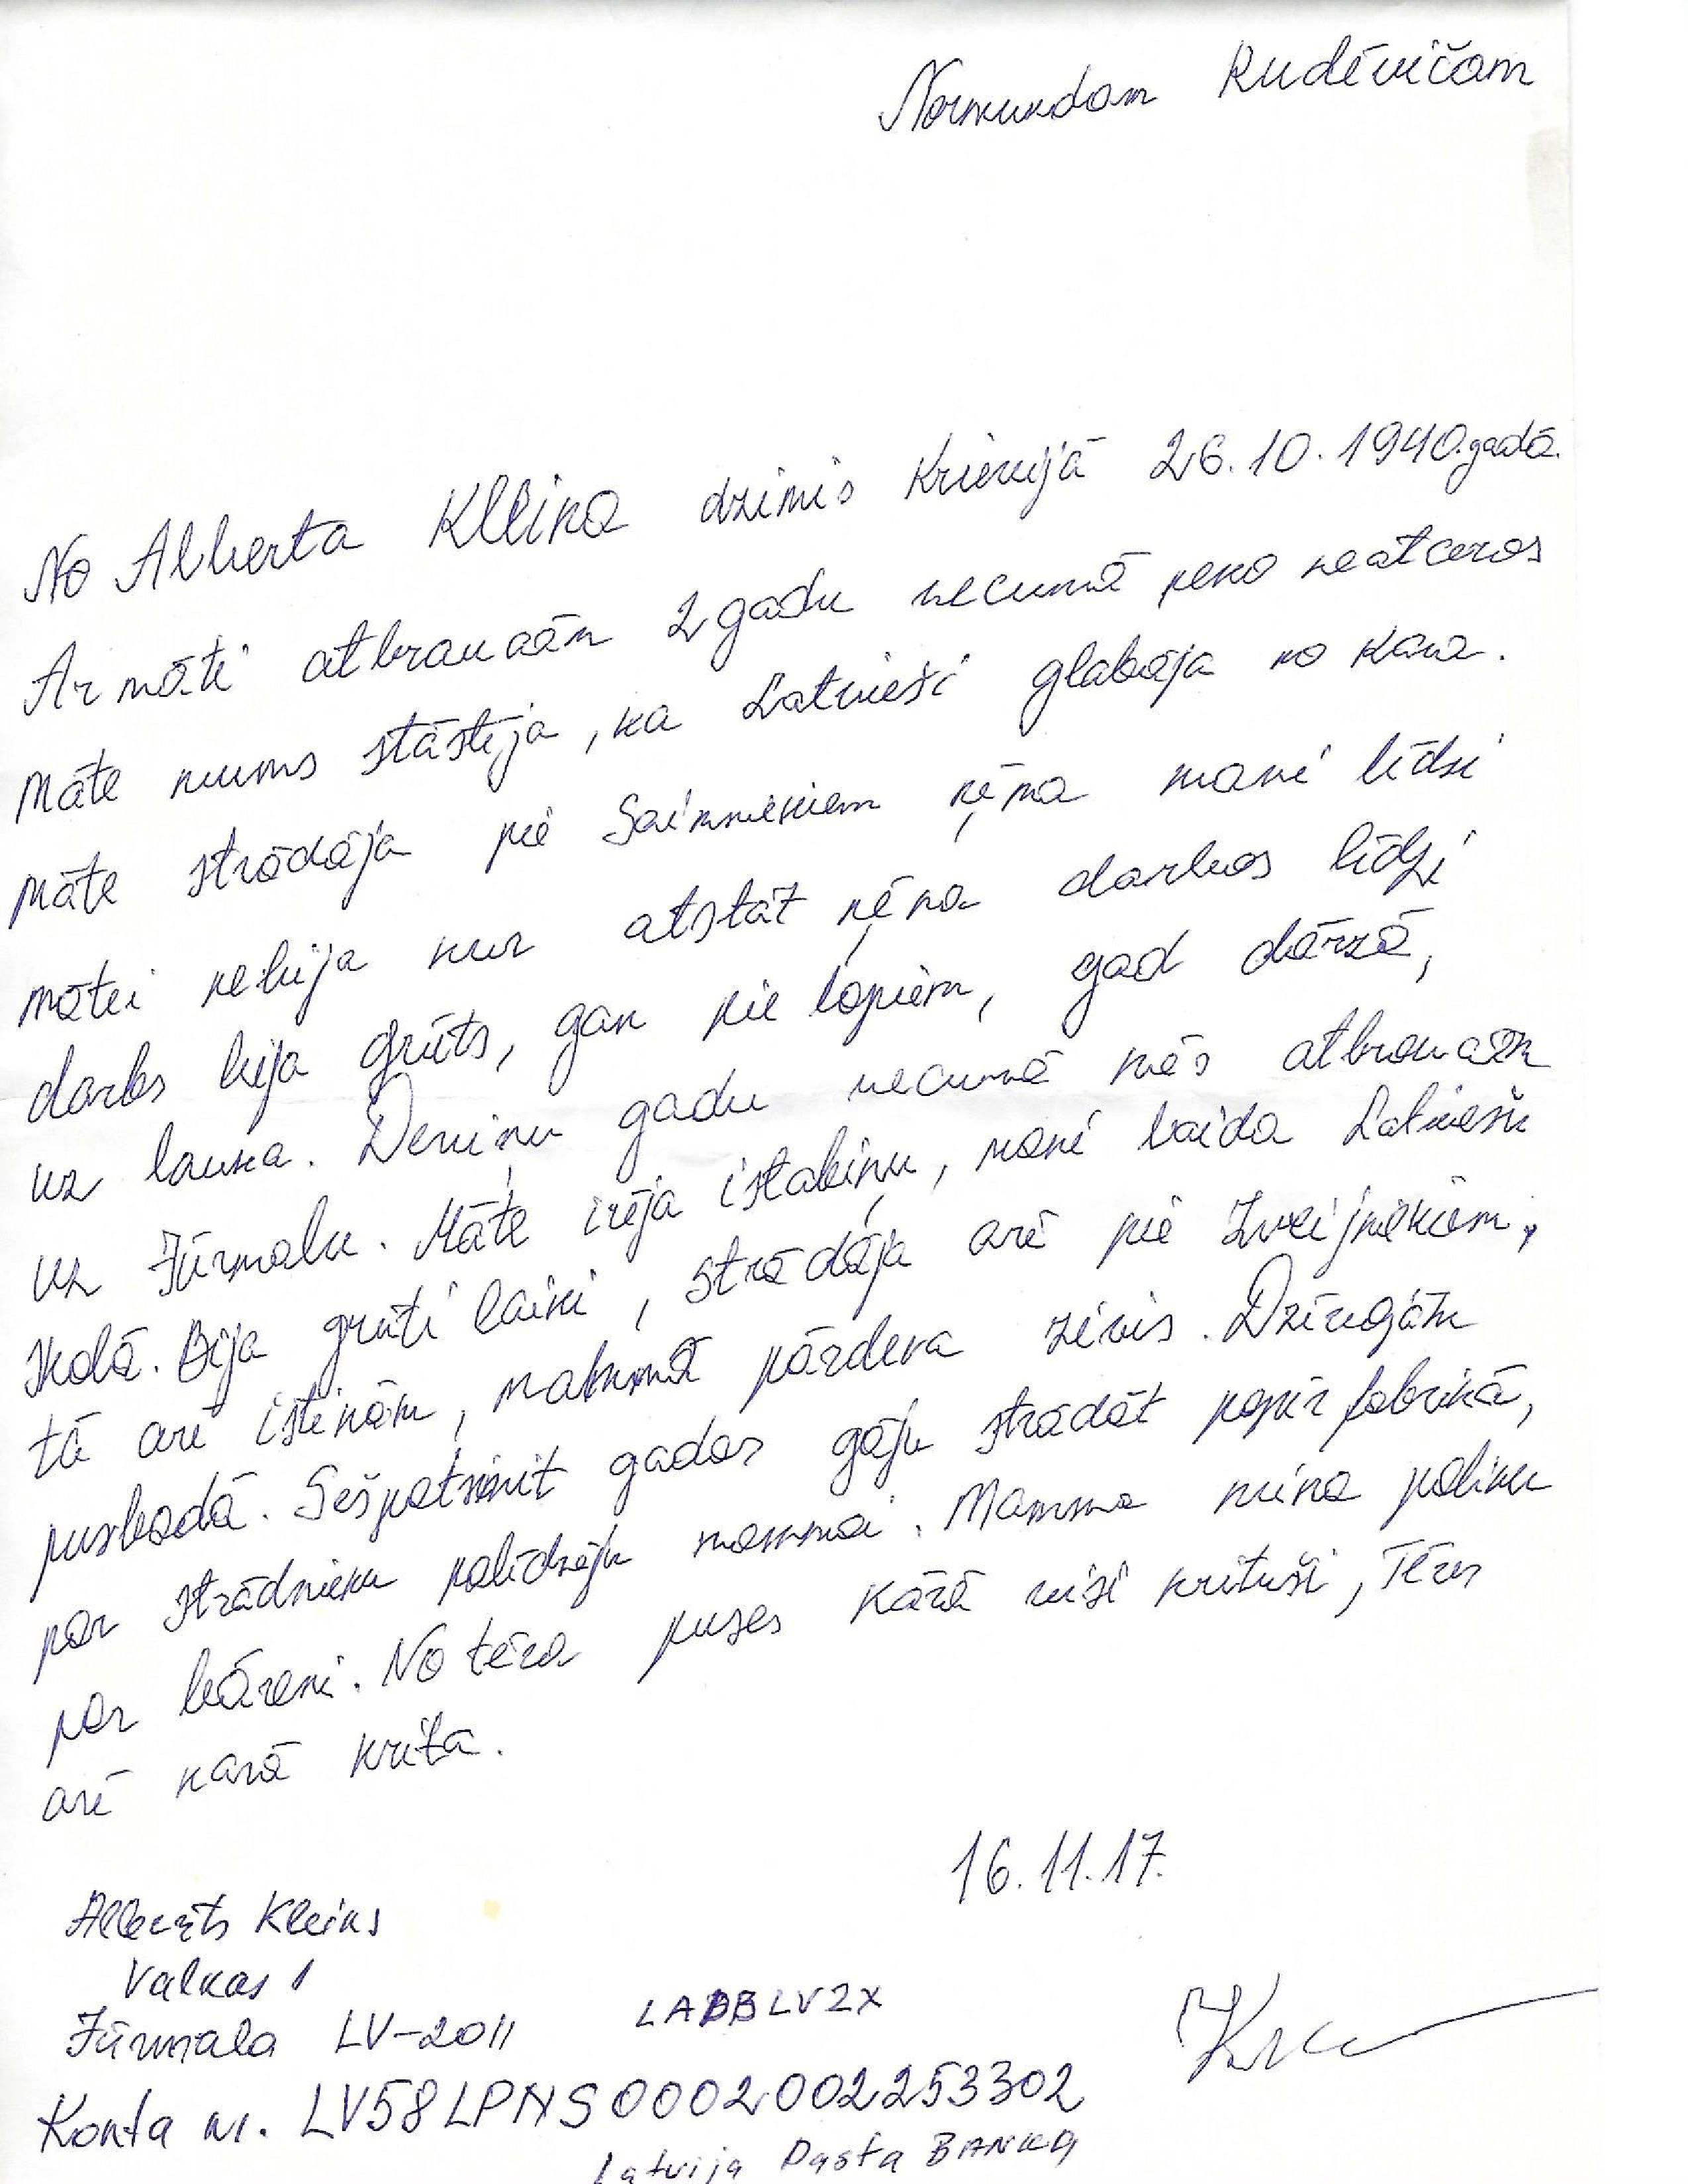 Normundam Rudēvičam
No Alberta Kleina dzimis Krievijā 26.10.1940.gadā.
Ar māti atbraucām 2 gadu vecumā neko neatceros
Māte mums stāstīja, ka Latvieši glabāja no kara.
Māte strādāja pie Saimniekiem ņēma mani līdzi
mātei nebija kur atstāt ņēma darbos līdzi
darbs bija grūts, gan pie lopiem, gad dārzā,
uz lauka. Deviņu gadu vecumā mēs atbraucām
uz Jūrmalu. Māte īrēja istabiņu, mani laida Latviešu
skolā. Bija grūti laiki, strādāja arī pie Zvejniekiem,
tā arī istinām, pārdeva zivis. Dzīvojām
pusbadā. Sešpatsmit gados gāju strādāt papīr fabrikā,
par strādnieku palīdzēju mammai. Mamma mira paliku
par bāreni. No tēva puses kārā visi krituši, Tēvs
arī karā krita.
16.11.17.
Alberts Kleins
Valkas 1
Jūrmala LV-2011 LAPBLV2X
Konta nr. LV58LPNS0002002253302
Latvija Pasta BANKA